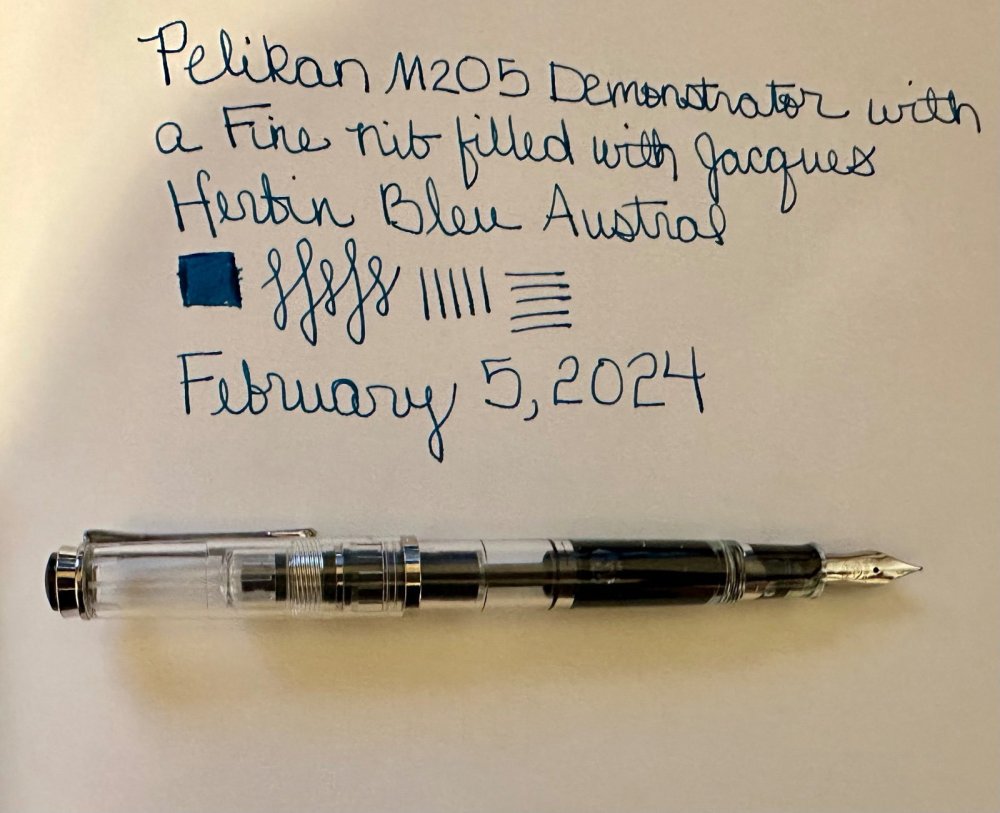 Pelikan M205 Demonstrator with
a Fine nib filled with Jacques
Herbin Bleu Austral
February 5, 2024